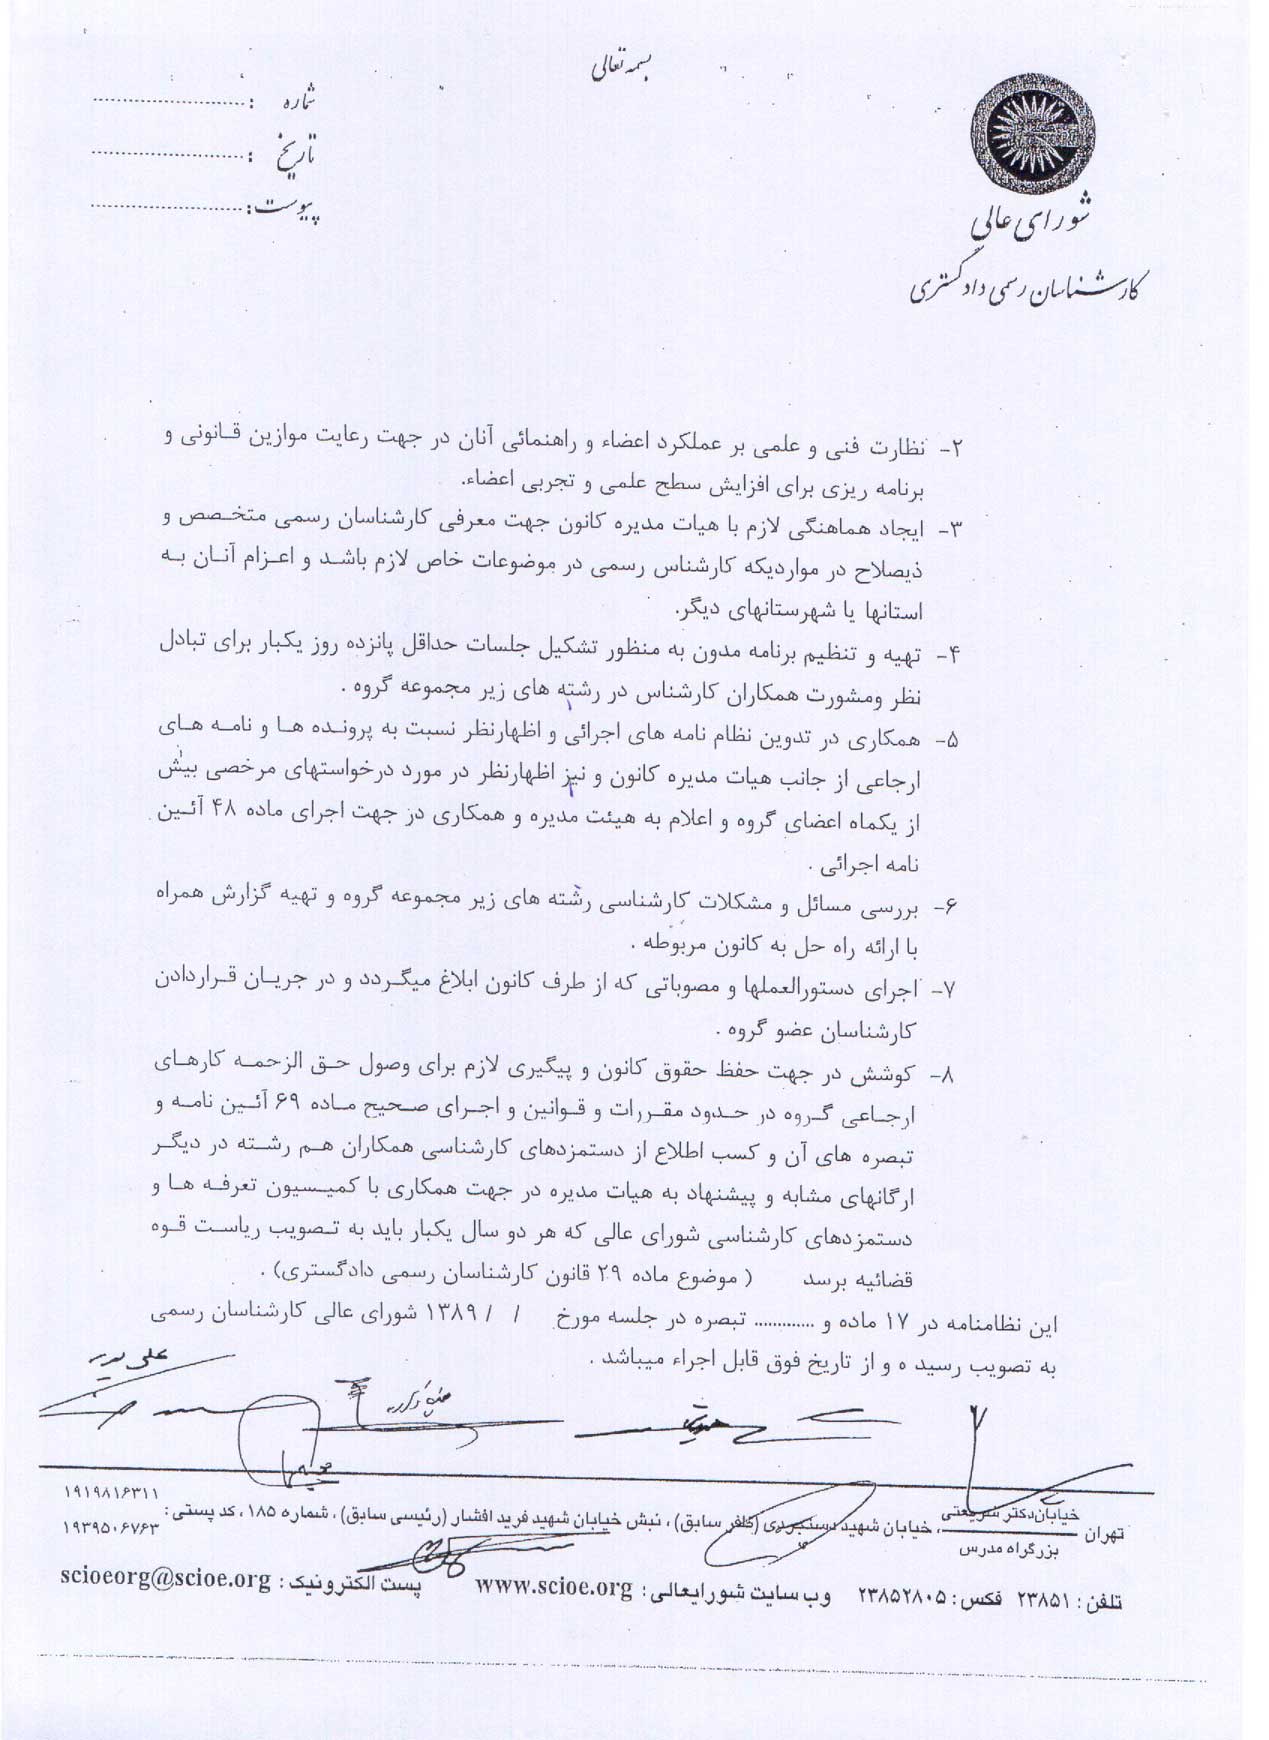 بسمه تعالی
شماره :
تاریخ :
پیوست :
شورای عالی
کارشناسان رسمی دادگستری
۲- نظارت فنی و علمی بر عملکرد اعضاء و راهنمائی آنان در جهت رعایت موازین قانونی و
برنامه ریزی برای افزایش سطح علمی و تجربی اعضاء.
۳- ایجاد هماهنگی لازم با هیات مدیره کانون جهت معرفی کارشناسان رسمی متخصص و
ذیصلاح در مواردیکه کارشناس رسمی در موضوعات خاص لازم باشد و اعزام آنان به
استانها یا شهرستانهای دیگر.
۴- تهیه و تنظیم برنامه مدون به منظور تشکیل جلسات حداقل پانزده روز یکبار برای تبادل
نظر ومشورت همکاران کارشناس در رشته های زیر مجموعه گروه .
۵- همکاری در تدوین نظام نامه های اجرائی و اظهارنظر نسبت به پرونده ها و نامه های
ارجاعی از جانب هیات مدیره کانون و نیز اظهارنظر در مورد درخواستهای مرخصی بیش
از یکماه اعضای گروه و اعلام به هیئت مدیره و همکاری در جهت اجرای ماده ۴۸ آئین
نامه اجرائی .
۶- بررسی مسائل و مشکلات کارشناسی رشته های زیر مجموعه گروه و تهیه گزارش همراه
با ارائه راه حل به کانون مربوطه .
۷- اجرای دستورالعملها و مصوباتی که از طرف کانون ابلاغ میگردد و در جریان قراردادن
کارشناسان عضو گروه .
۸- کوشش در جهت حفظ حقوق کانون و پیگیری لازم برای وصول حق الزحمه کارهای
ارجاعی گروه در حدود مقررات و قوانین و اجرای صحیح ماده ۶۹ آئین نامه و
تبصره های آن و کسب اطلاع از دستمزدهای کارشناسی همکاران هم رشته در دیگر
ارگانهای مشابه و پیشنهاد به هیات مدیره در جهت همکاری با کمیسیون تعرفه ها و
دستمزدهای کارشناسی شورای عالی که هر دو سال یکبار باید به تصویب ریاست قوه
قضائیه برسد ( موضوع ماده ۲۹ قانون کارشناسان رسمی دادگستری) .
این نظامنامه در ۱۷ ماده و ............. تبصره در جلسه مورخ / / ۱۳۸۹ شورای عالی کارشناسان رسمی
به تصویب رسید ه و از تاریخ فوق قابل اجراء میباشد .
تهران خیابان دکتر شریعتی
بزرگراه مدرس
، خیابان شهید دستجردی (ظفر سابق) ، نبش خیابان شهید فرید افشار (رئیسی سابق) ، شماره ۱۸۵ ، کد پستی :
۱۹۱۹۸۱۶۳۱۱
۱۹۳۹۵۰۶۷۶۳
تلفن : ۲۳۸۵۱ فکس : ۲۳۸۵۲۸۰۵ وب سایت شورایعالی : www.scioe.org پست الکترونیک : scioeorg@scioe.org